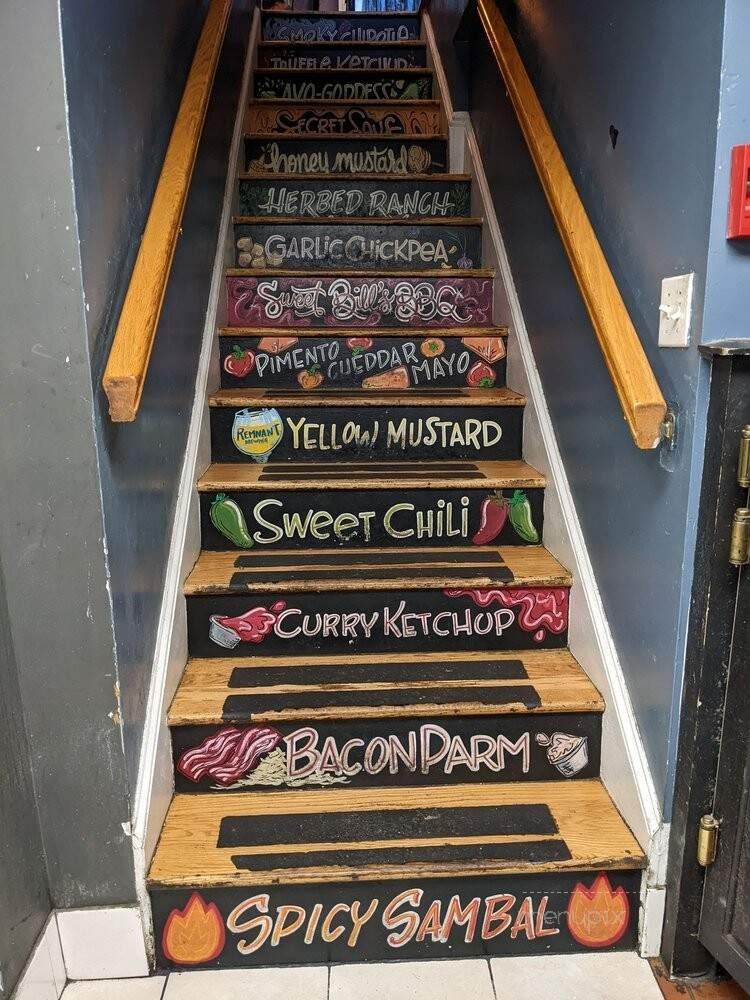 SMOKY CHIPOTLE
TRUFFLE KETCHUP
AVO-GODDESS
SECRET SOUS
honey mustard
HERBED RANCH
GARLIC CHICKPEA
Sweet Bill's BBQ
PIMENTO CHEDDAR MAYO
REMNANT BREWING YELLOW MUSTARD
SWEET CHILI
CURRY KETCHUP
BACON PARM
SPICY SAMBAL
menupix